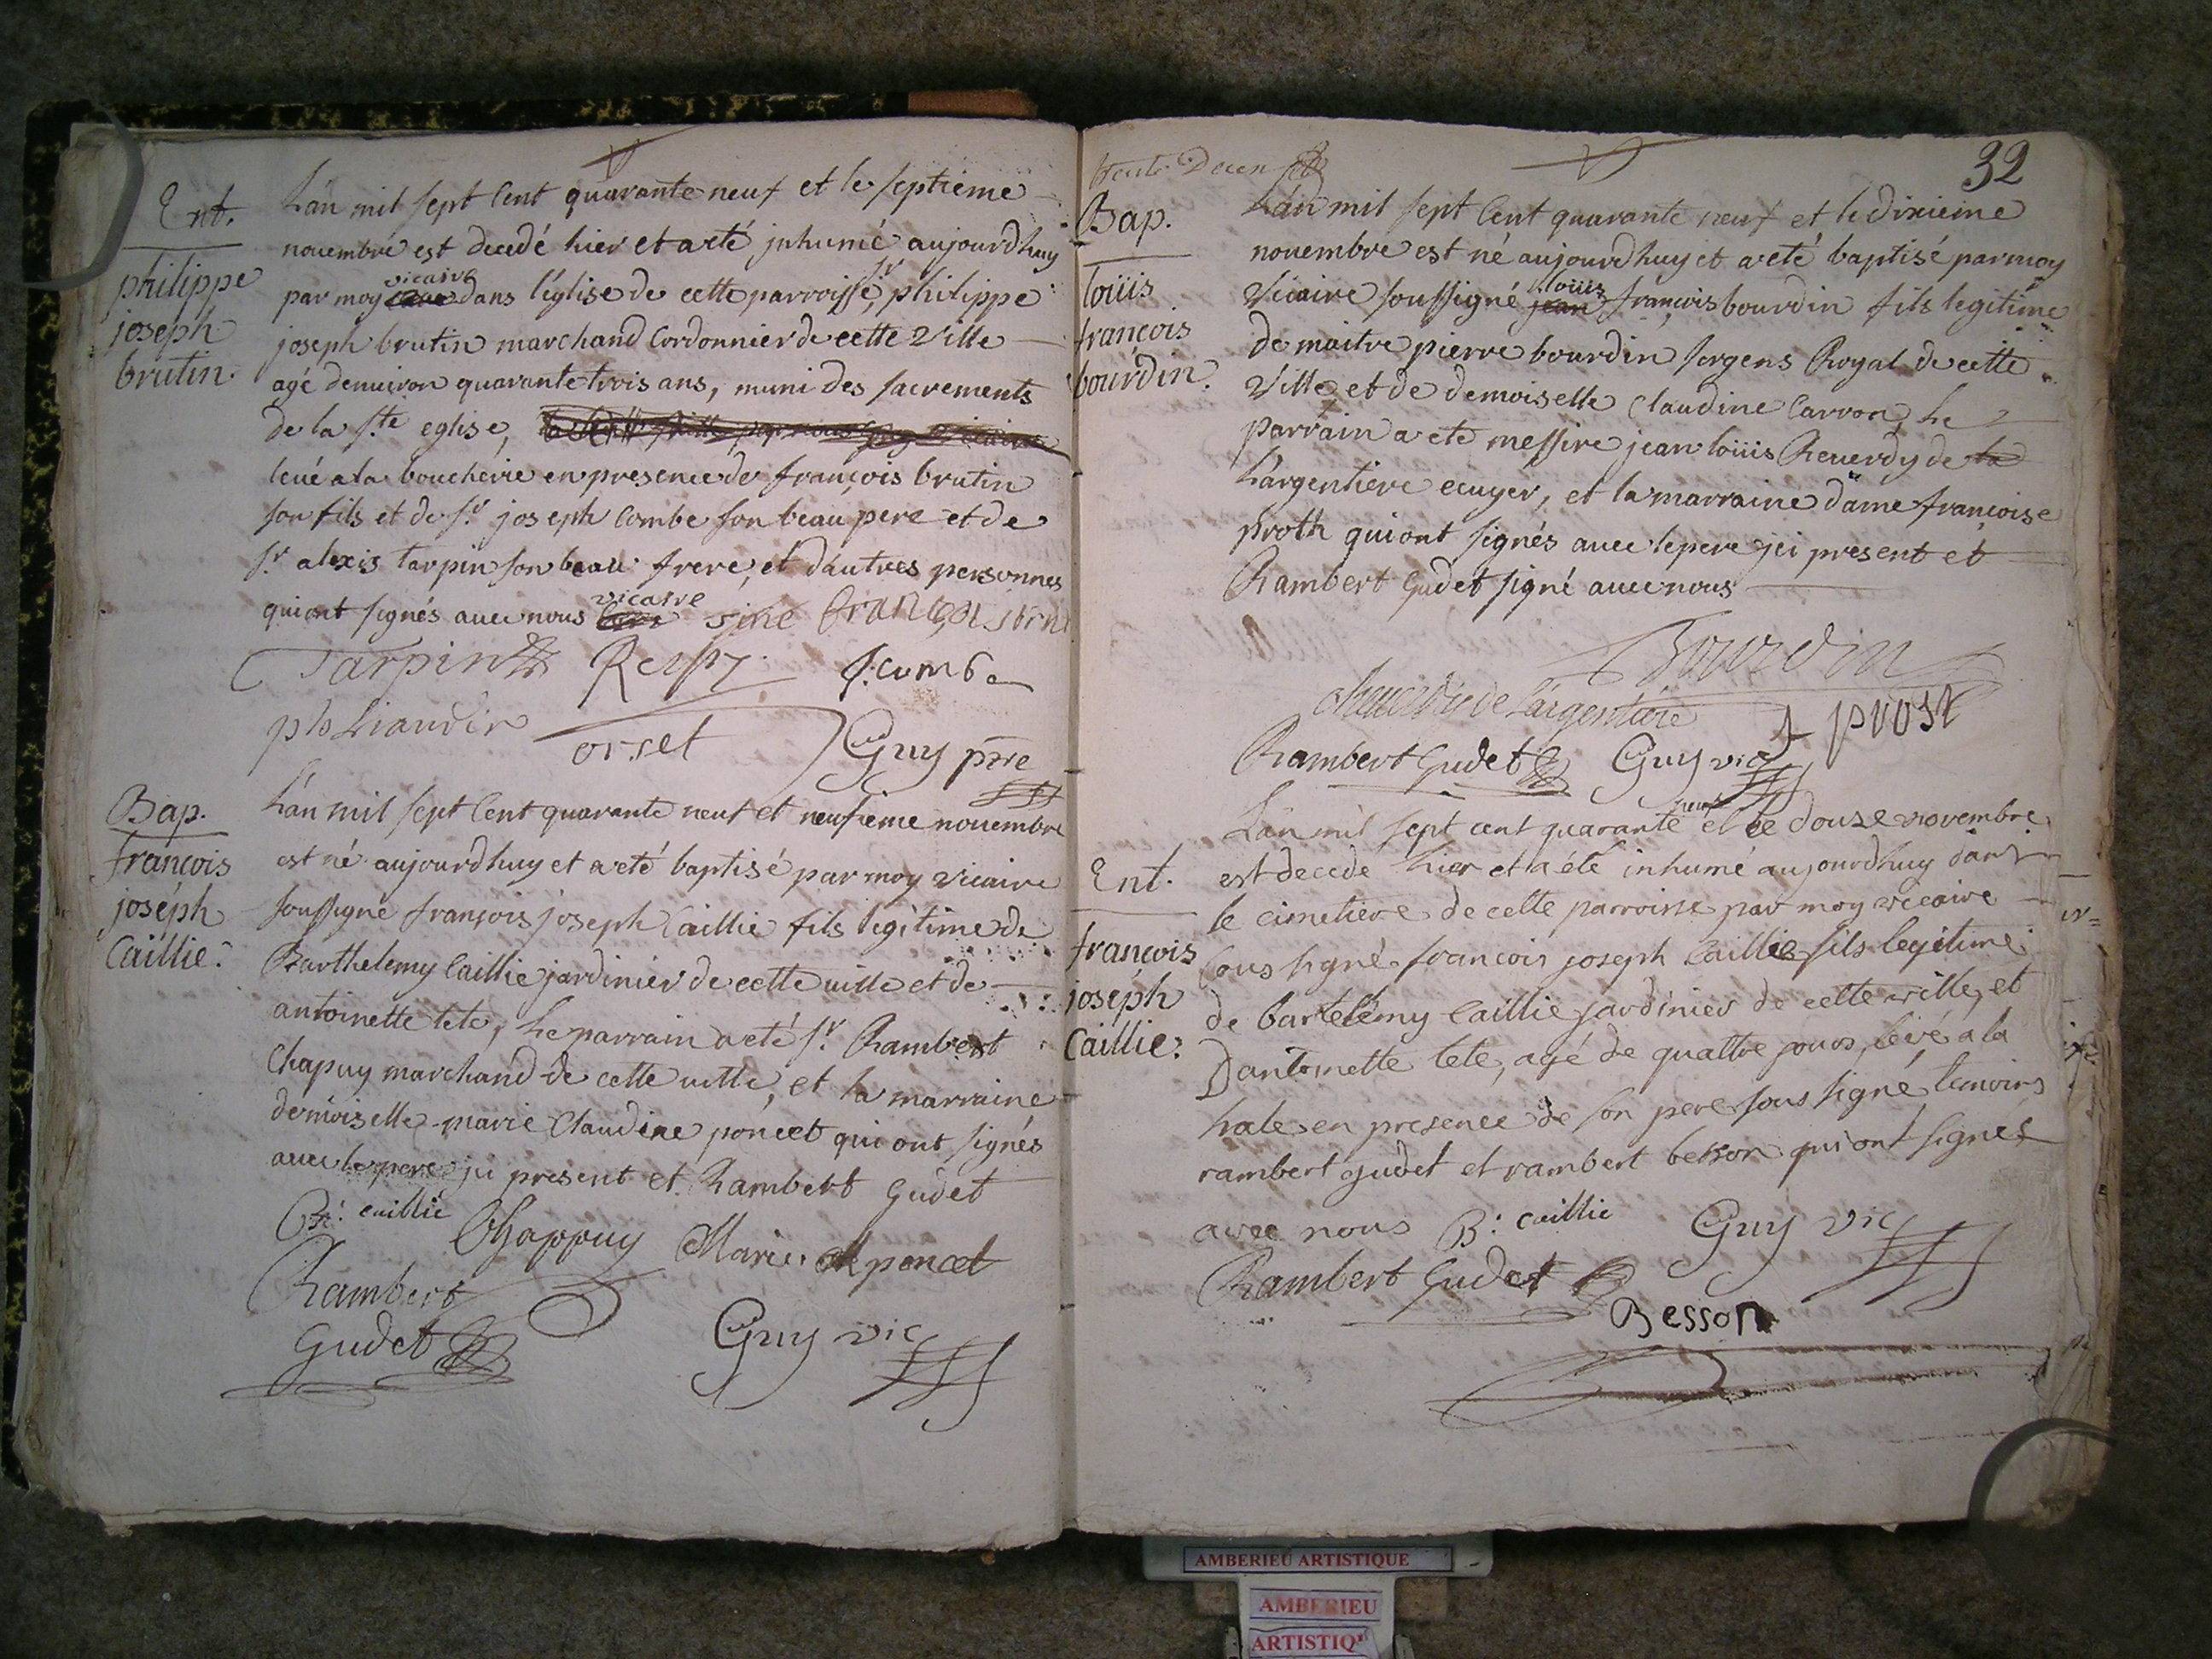 Ent.
philippe
joseph
brutin.
L'an mil sept Cent quarante neuf et le septieme
nouembre est decedé hier et a eté jnhumé aujourdhuy
par moy vicaire dans l'église de cette parroisse, sr philippe
joseph brutin marchand Cordonnier de cette Ville
agé denuiron quarante trois ans, muni des sacrements
de la ste eglise,
leué a la boucherie en presence de françois brutin
son fils et de sr joseph Combe son beau pere et de
sr alexis tarpin son beau frere, et d'autres personnes
qui ont signés auec nous vicaire
Tarpin J. Comb
ph Liaudin orset Guy ptre
Bap.
françois
joseph
Caillie.
L'an mil sept Cent quarante neuf et neufieme nouembre
est né aujourdhuy et a eté baptisé par moy Vicaire
soussigné françois joseph Caillie fils legitime de
Barthelemy Caillie jardinier de cette uille et de
antoinette tete, Le parrain a eté sr Rambert
Chapuy marchand de cette uille, et la marraine
demoiselle marie Claudine poncet qui ont signés
auec le pere jci present et Rambert Gudet
B: caillie Chappuy Marie poncet
Rambert
Gudet Guy vic
32
Bap.
loüis
françois
bourdin.
L'an mil sept Cent quarante neuf et le dixieme
nouembre est né aujourdhuy et a eté baptisé par moy
Vicaire soussigné jean loüis françois bourdin fils legitime
de maitre pierre bourdin sergens Royal de cette
Ville, et de demoiselle Claudine Carron, Le
parrain a eté messire jean loüis Reuerdy de la
Largentiere ecuyer, et la marraine dame françoise
proth qui ont signés auec le pere jci present et
Rambert Gudet signé auec nous
Bourdin
de Largentiere prost
Rambert Gudet Guy vic
Ent.
françois
joseph
Caillie.
L'an mil sept cent quarante neuf et le douze novembre
est decedé hier et a été inhumé aujourdhuy dans
le cimetiere de cette parroisse par moy vicaire
sous signé françois joseph Caillie fils legitime
de bartelemy Caillie jardinier de cette ville, et
Dantoinette tete, agé de quattre jours, levé a la
hale en presence de son pere sous signé temoins
rambert gudet et rambert besson qui ont signés
avec nous B: caillie Guy vic
Rambert Gudet
Besson
AMBERIEU ARTISTIQUE
AMBERIEU
ARTISTIQ